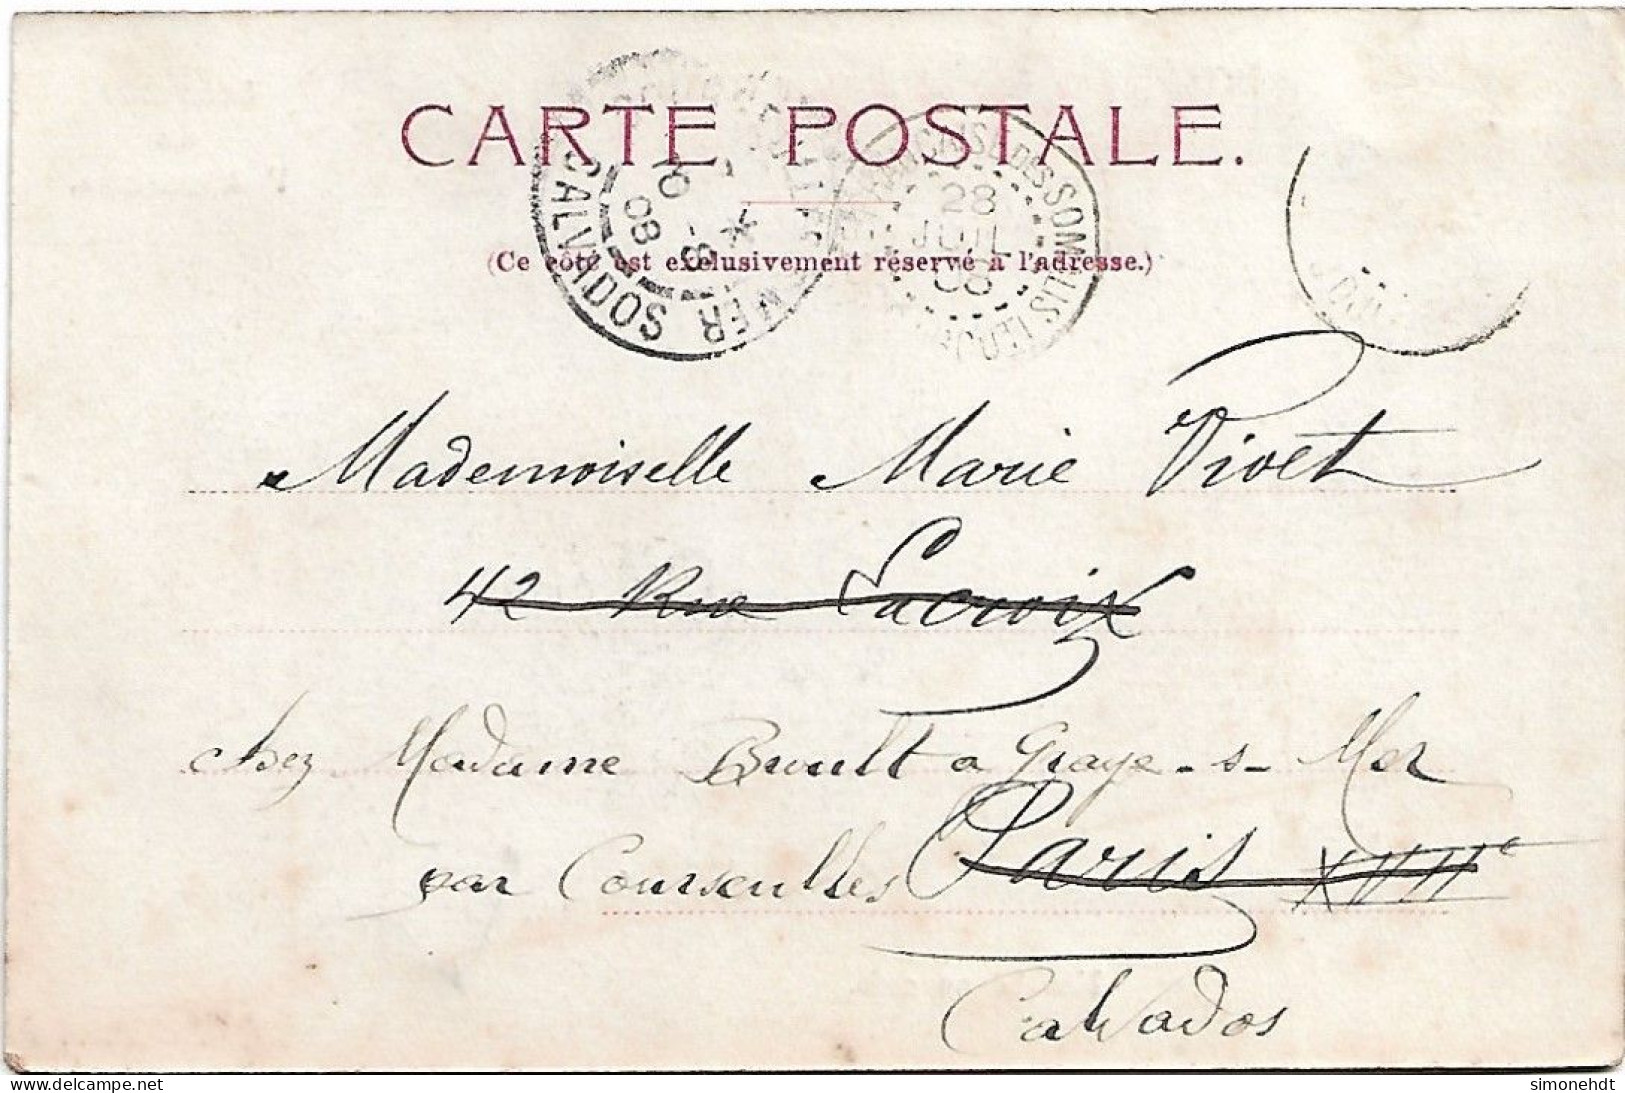 CARTE POSTALE.
(Ce côté est exclusivement réservé à l'adresse.)
CALVADOS
10 - 8
08
DES SOMALIS
28
JUIL
Mademoiselle Marie Pivet
42 Rue Lacroix
chez Madame Buult a Graye-s-Mer
par Courseulles Paris XVIIe
Calvados
simonehdt